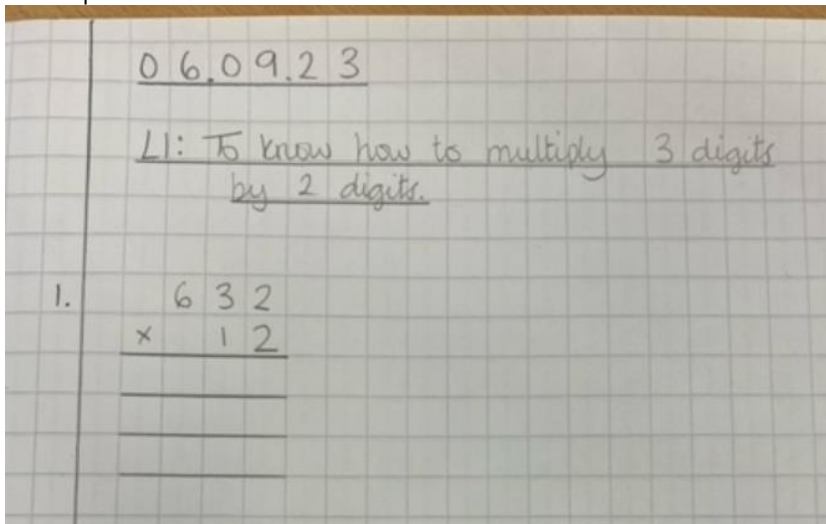 06.09.23
LI: To know how to multiply 3 digits
by 2 digits.
1. 632
× 12